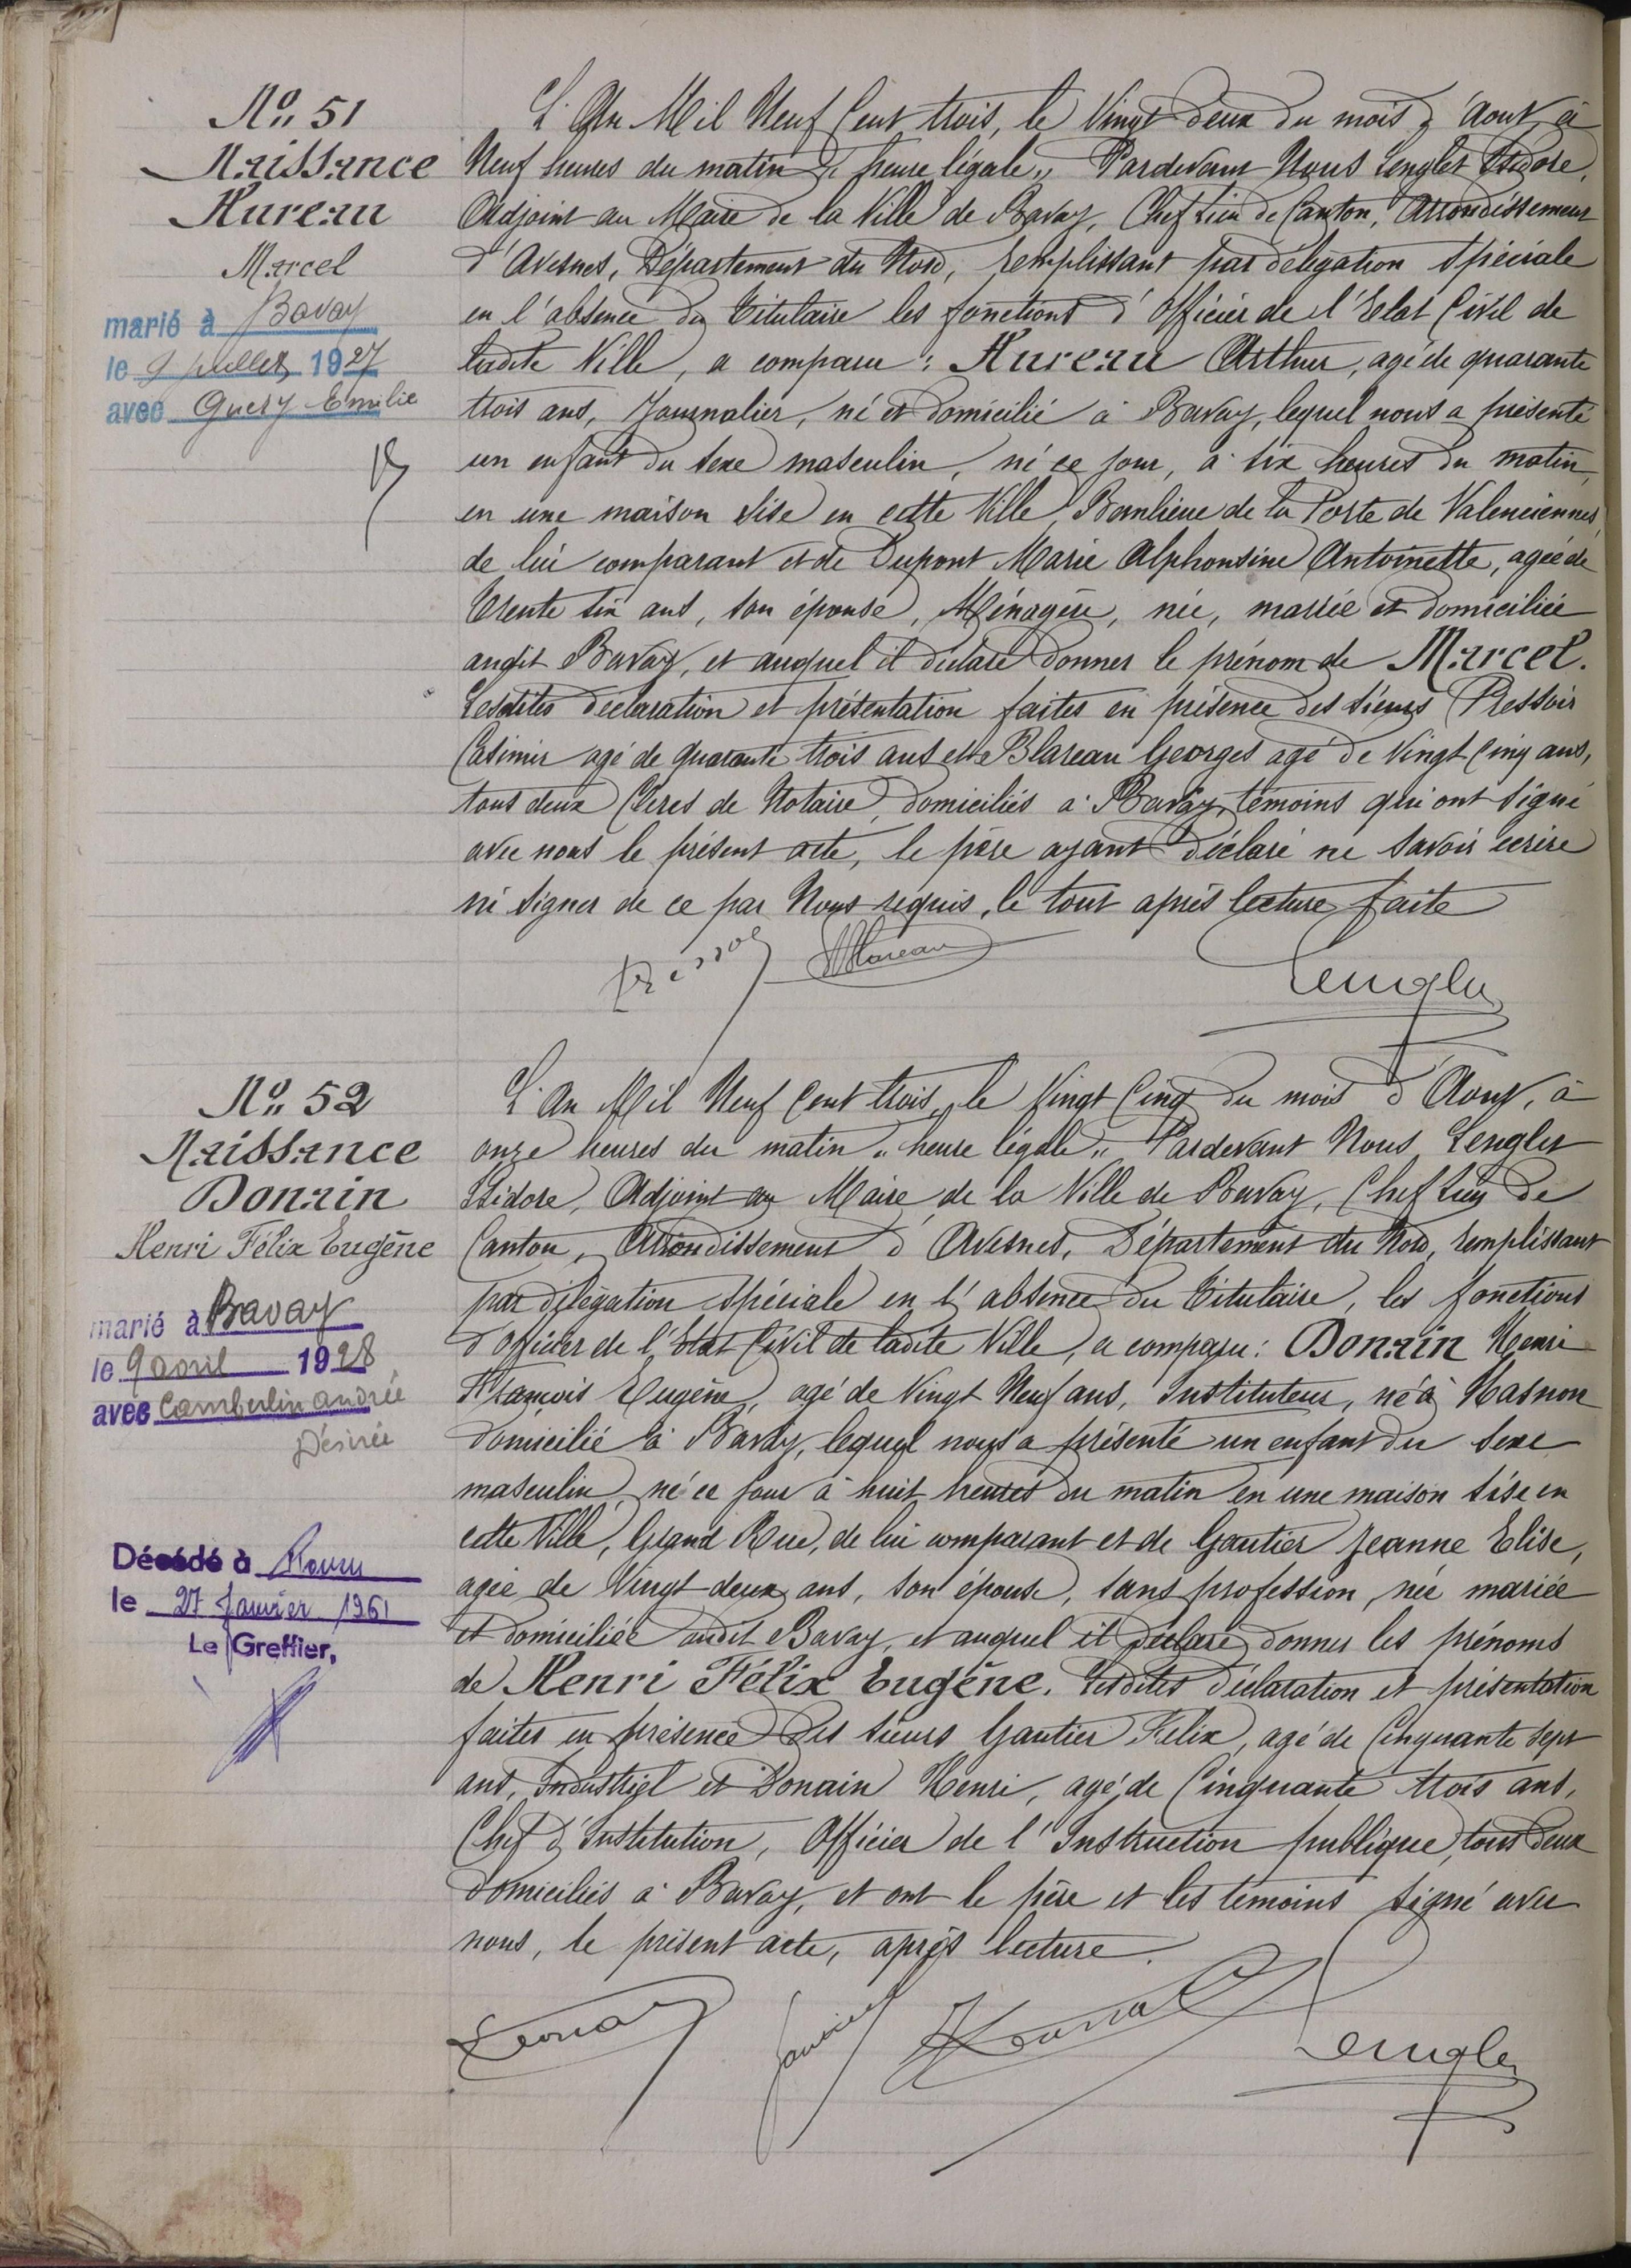 No 51
Naissance
Hureau
Marcel
marié à Bavay
le 9 juillet 1927
avec Guery Emilie
L'An Mil Neuf Cent trois, le Vingt deux du mois d'Aout, à
Neuf heures du matin " heure légale " Pardevant Nous Lenglet Isidore,
Adjoint au Maire de la Ville de Bavay, Chef Lieu de Canton, Arrondissement
d'Avesnes, Département du Nord, remplissant par délégation spéciale
en l'absence du Titulaire les fonctions d'Officier de l'Etat Civil de
ladite Ville, a comparu : Hureau Arthur, agé de quarante
trois ans, Journalier, né et domicilié à Bavay, lequel nous a présenté
un enfant du sexe masculin, né ce jour, à six heures du matin,
en une maison sise en cette Ville, Banlieue de la Porte de Valenciennes,
de lui comparant et de Dupont Marie Alphonsine Antoinette, agée de
Trente six ans, son épouse, Ménagère, née, mariée et domiciliée
audit Bavay, et auquel il déclare donner le prénom de Marcel.
Lesdites déclaration et présentation faites en présence des sieurs Pressoir
Casimir agé de quarante trois ans et de Blareau Georges agé de Vingt Cinq ans,
tous deux Clercs de Notaire, domiciliés à Bavay, témoins qui ont signé
avec nous le présent acte, le père ayant déclaré ne savoir ecrire
ni signer de ce par Nous requis, le tout après lecture faite
Blareau
Lenglet
No 52
Naissance
Donain
Henri Félix Eugène
marié à Bavay
le 9 avril 1928
avec Camberlin andrée
Désirée
Décédé à Rouen
le 27 Janvier 1961
Le Greffier,
L'An Mil Neuf Cent trois, le Vingt Cinq du mois d'Aout, à
onze heures du matin " heure légale " Pardevant Nous Lenglet
Isidore, Adjoint au Maire de la Ville de Bavay, Chef Lieu de
Canton, Arrondissement d'Avesnes, Département du Nord, remplissant
par délégation spéciale en l'absence du Titulaire, les fonctions
d'Officier de l'Etat Civil de ladite Ville, a comparu : Donain Henri
François Eugène, agé de Vingt Neuf ans, Instituteur, né à Hasnon
domicilié à Bavay, lequel nous a présenté un enfant du sexe
masculin, né ce jour à huit heures du matin en une maison sise en
cette Ville, Grand Rue, de lui comparant et de Gautier Jeanne Elise,
agée de Vingt deux ans, son épouse, sans profession, née mariée
et domiciliée audit Bavay, et auquel il déclare donner les prénoms
de Henri Félix Eugène. Lesdites déclaration et présentation
faites en présence des sieurs Gautier Félix, agé de Cinquante sept
ans, Industriel et Donain Henri, agé de Cinquante trois ans,
Chef d'Institution, Officier de l'Instruction publique, tous deux
domiciliés à Bavay, et ont le père et les témoins signé avec
nous, le présent acte, après lecture.
Lenglet